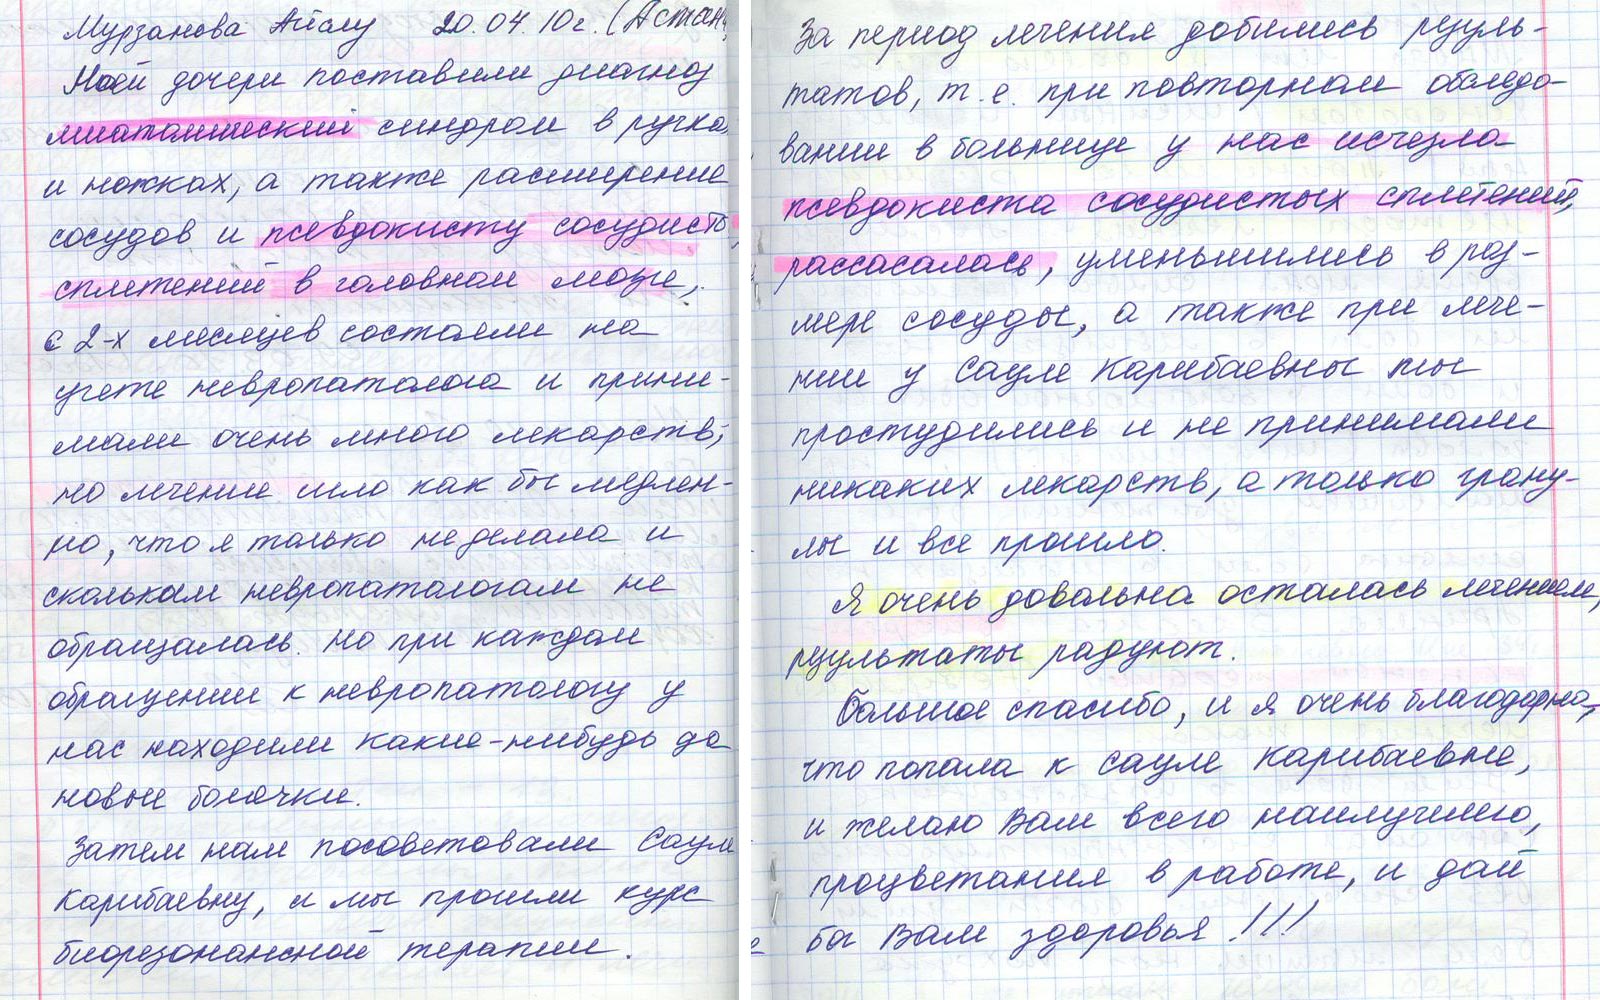 Мурзанова Айслу 20.04.10г. (Астан
Моей дочери поставили диагноз
миатонический синдром в ручка
и ножках, а также расширение
сосудов и псевдокисту сосудисты
сплетений в головном мозге,
с 2-х месяцев состояли на
учете невропатолога и прини-
мали очень много лекарств,
но лечение шло как бы медлен-
но, что я только не делала и
скольким невропатологам не
обращалась. Но при каждом
обращении к невропатологу у
нас находили какие-нибудь да
новые болячки.
Затем нам посоветовали Сауле
Карибаевну, и мы прошли курс
биорезонансной терапии.
За период лечения добились резуль-
татов, т.е. при повторном обследо-
вании в больнице у нас исчезла
псевдокиста сосудистых сплетений,
рассасалась, уменьшились в раз-
мере сосуды, а также при лече-
нии у Сауле Карибаевны мы
простудились и не принимали
никаких лекарств, а только грану-
лы и все прошло.
Я очень довольна осталась лечением,
результаты радуют.
Большое спасибо, и я очень благодарна,
что попала к Сауле Карибаевне,
и желаю Вам всего наилучшего,
процветания в работе, и дай
бог Вам здоровья!!!